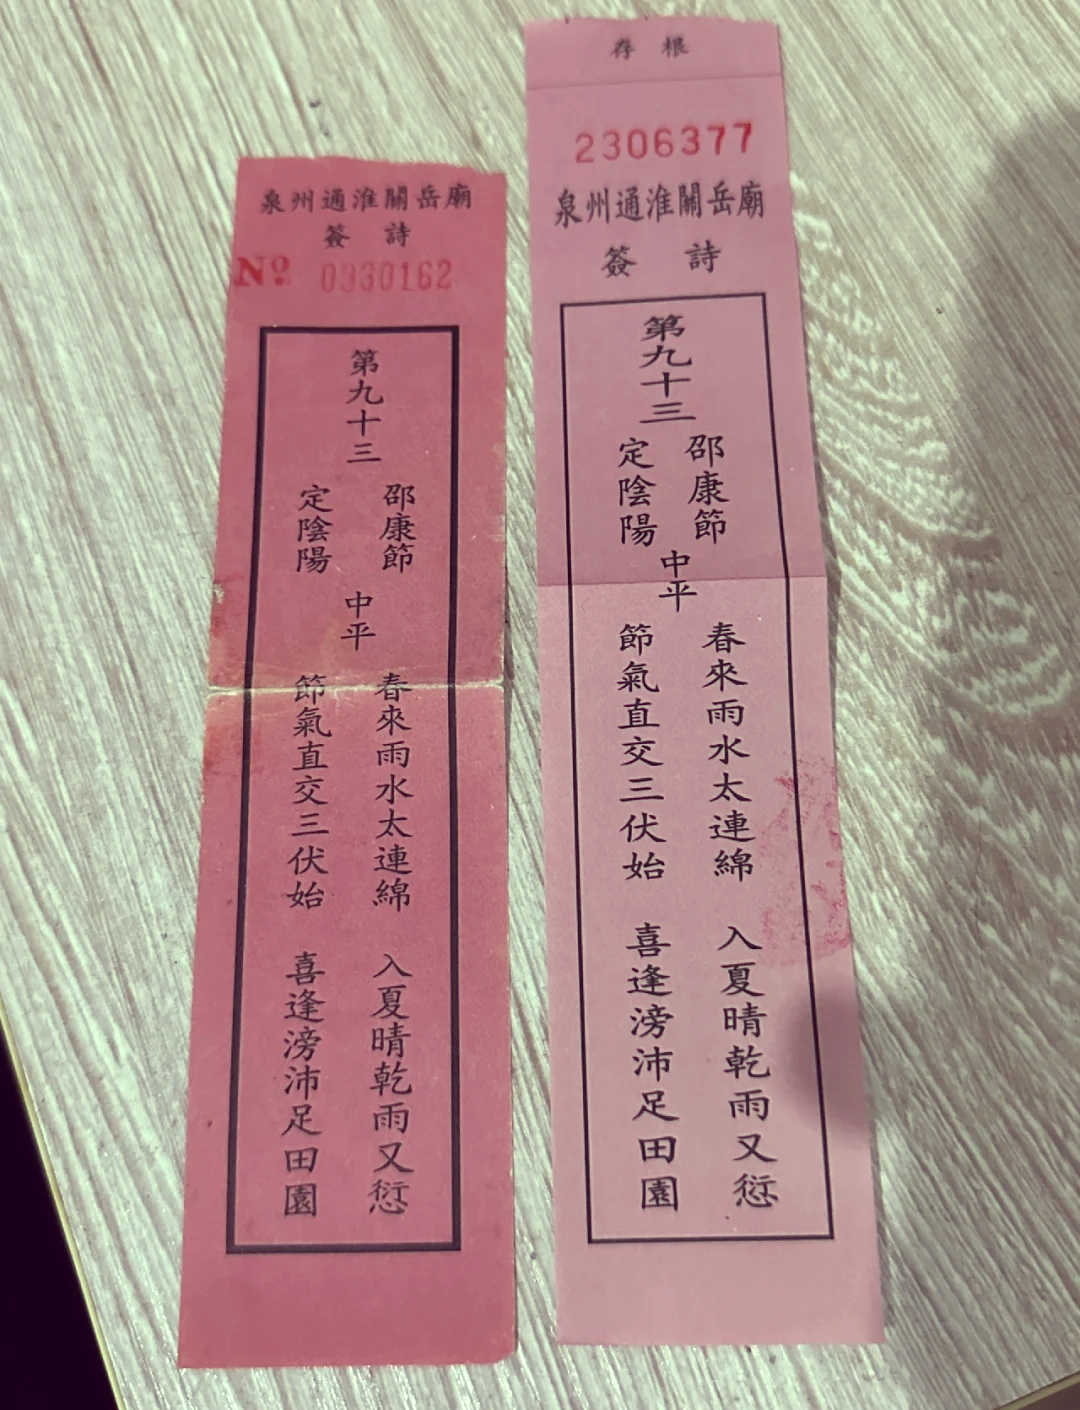 泉州通淮關岳廟
簽 詩
Nº 0930162
第九十三
邵康節
定陰陽
中平
春來雨水太連綿 入夏晴乾雨又愆
節氣直交三伏始 喜逢滂沛足田園
存 根
2306377
泉州通淮關岳廟
簽 詩
第九十三
邵康節
定陰陽
中平
春來雨水太連綿 入夏晴乾雨又愆
節氣直交三伏始 喜逢滂沛足田園